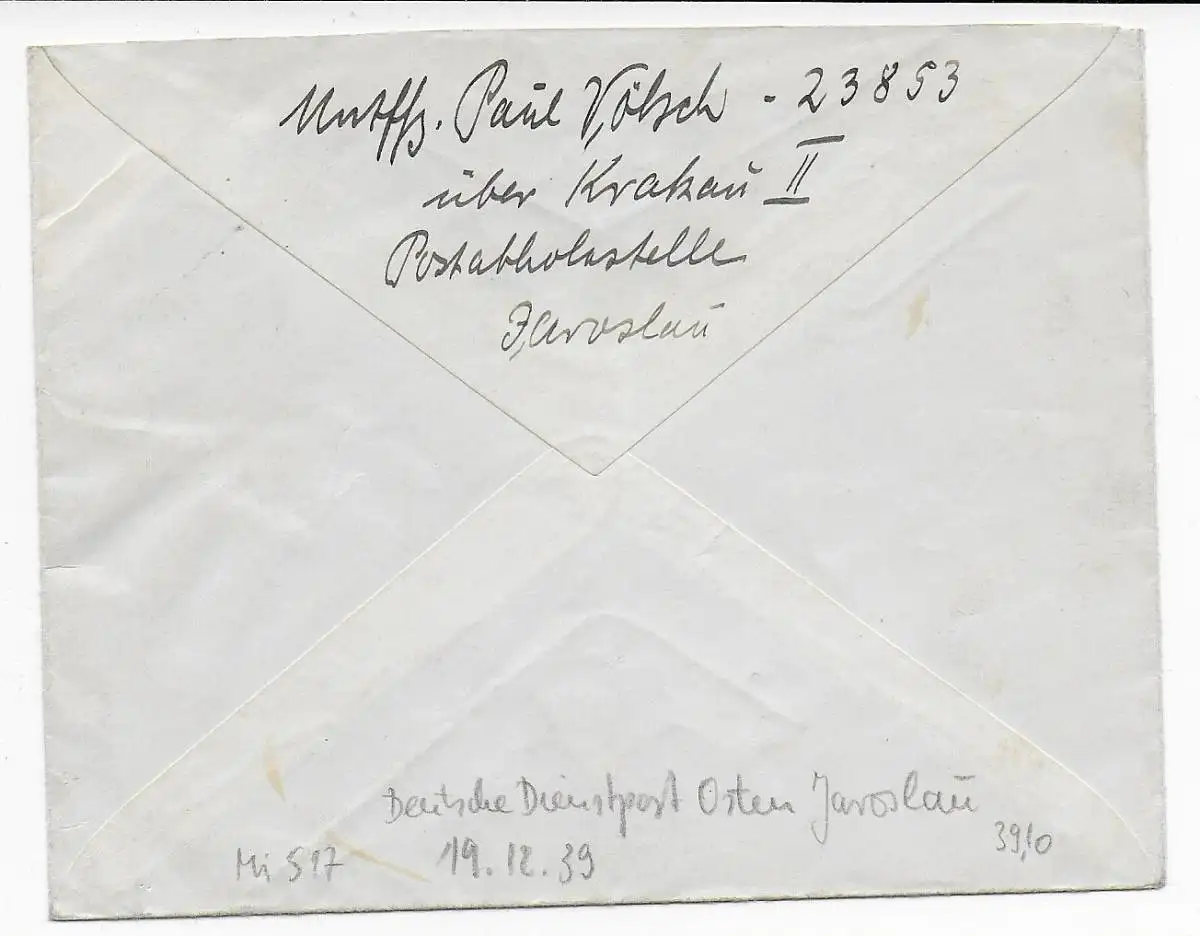 Untffz. Paul Völsch - 23853
über Krakau II
Postabholestelle
Jaroslau
Deutsche Dienstpost Osten Jaroslau
Mi 517 19.12.39 39,10